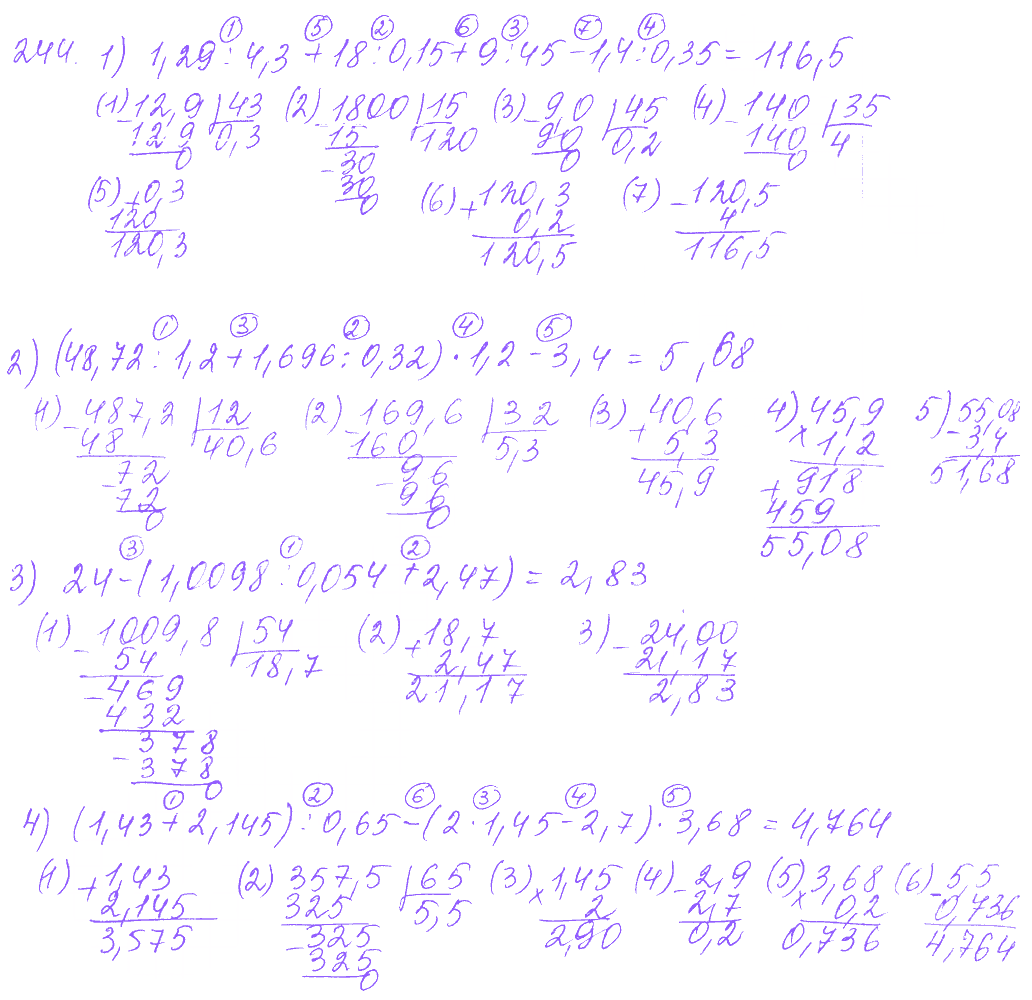 ① ⑤ ② ⑥ ③ ⑦ ④
244. 1) 1,29 : 4,3 + 18 : 0,15 + 9 : 45 - 1,4 : 0,35 = 116,5
(1) - 12,9 | 43 (2) - 1800 | 15 (3) - 9,0 | 45 (4) - 140 | 35
12 9 0,3 15 120 90 0,2 140 4
0 - 30 0 0
30
0
(5) + 0,3 (6) + 120,3 (7) - 120,5
120 0,2 4
120,3 120,5 116,5
① ③ ② ④ ⑤
2) (48,72 : 1,2 + 1,696 : 0,32) · 1,2 - 3,4 = 5 ,68
(1) - 487,2 | 12 (2) - 169,6 | 32 (3) + 40,6 4) 45,9 5) 55,08
48 40,6 160 5,3 5,3 × 1,2 - 3,4
- 72 - 96 45,9 + 918 51,68
72 96 459
0 0 55,08
③ ① ②
3) 24 - (1,0098 : 0,054 + 2,47) = 2,83
(1) - 1009,8 | 54 (2) + 18,7 3) - 24,00
54 18,7 2,47 21,17
- 469 21,17 2,83
432
- 378
378
0
① ② ⑥ ③ ④ ⑤
4) (1,43 + 2,145) : 0,65 - (2 · 1,45 - 2,7) · 3,68 = 4,764
(1) + 1,43 (2) 357,5 | 65 (3) × 1,45 (4) - 2,9 (5) × 3,68 (6) - 5,5
2,145 325 5,5 2 2,7 0,2 0,736
3,575 - 325 2,90 0,2 0,736 4,764
325
0